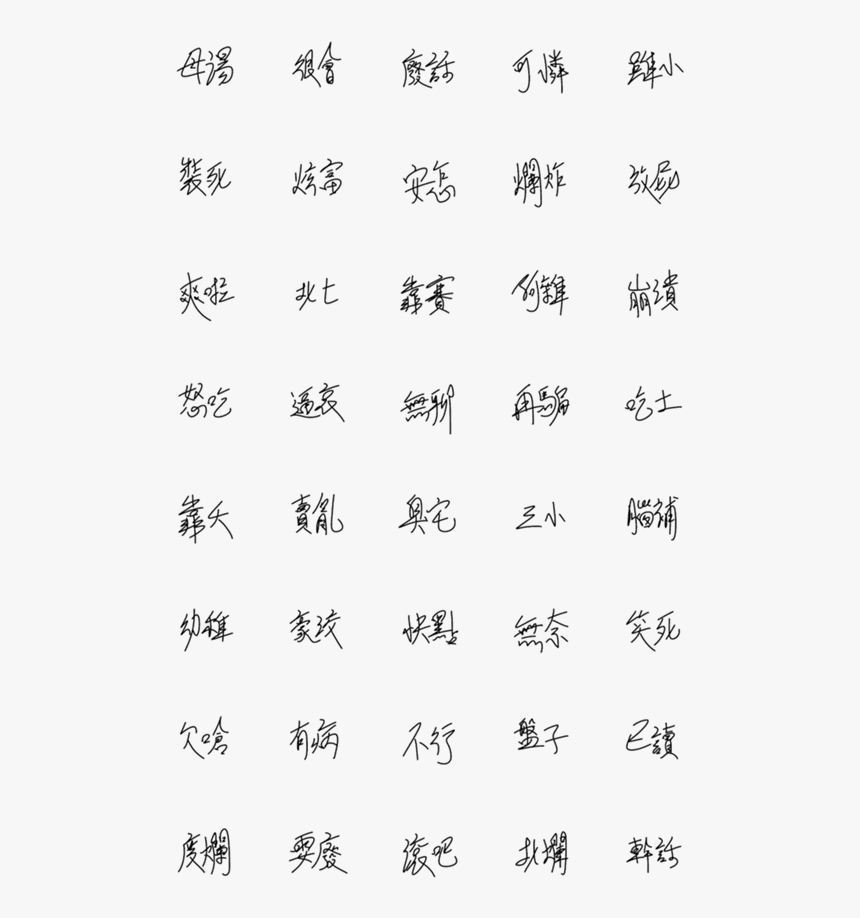 母湯 很會 廢話 可憐 雖小
裝死 炫富 安怎 爛炸 放屁
爽啦 北七 靠賽 何雜 崩潰
怒吃 逼哀 無聊 再騙 吃土
靠夭 賣亂 臭宅 三小 腦補
幼稚 豪洨 快點 無奈 笑死
欠嗆 有病 不行 盤子 已讀
度爛 耍廢 滾吧 北爛 幹話